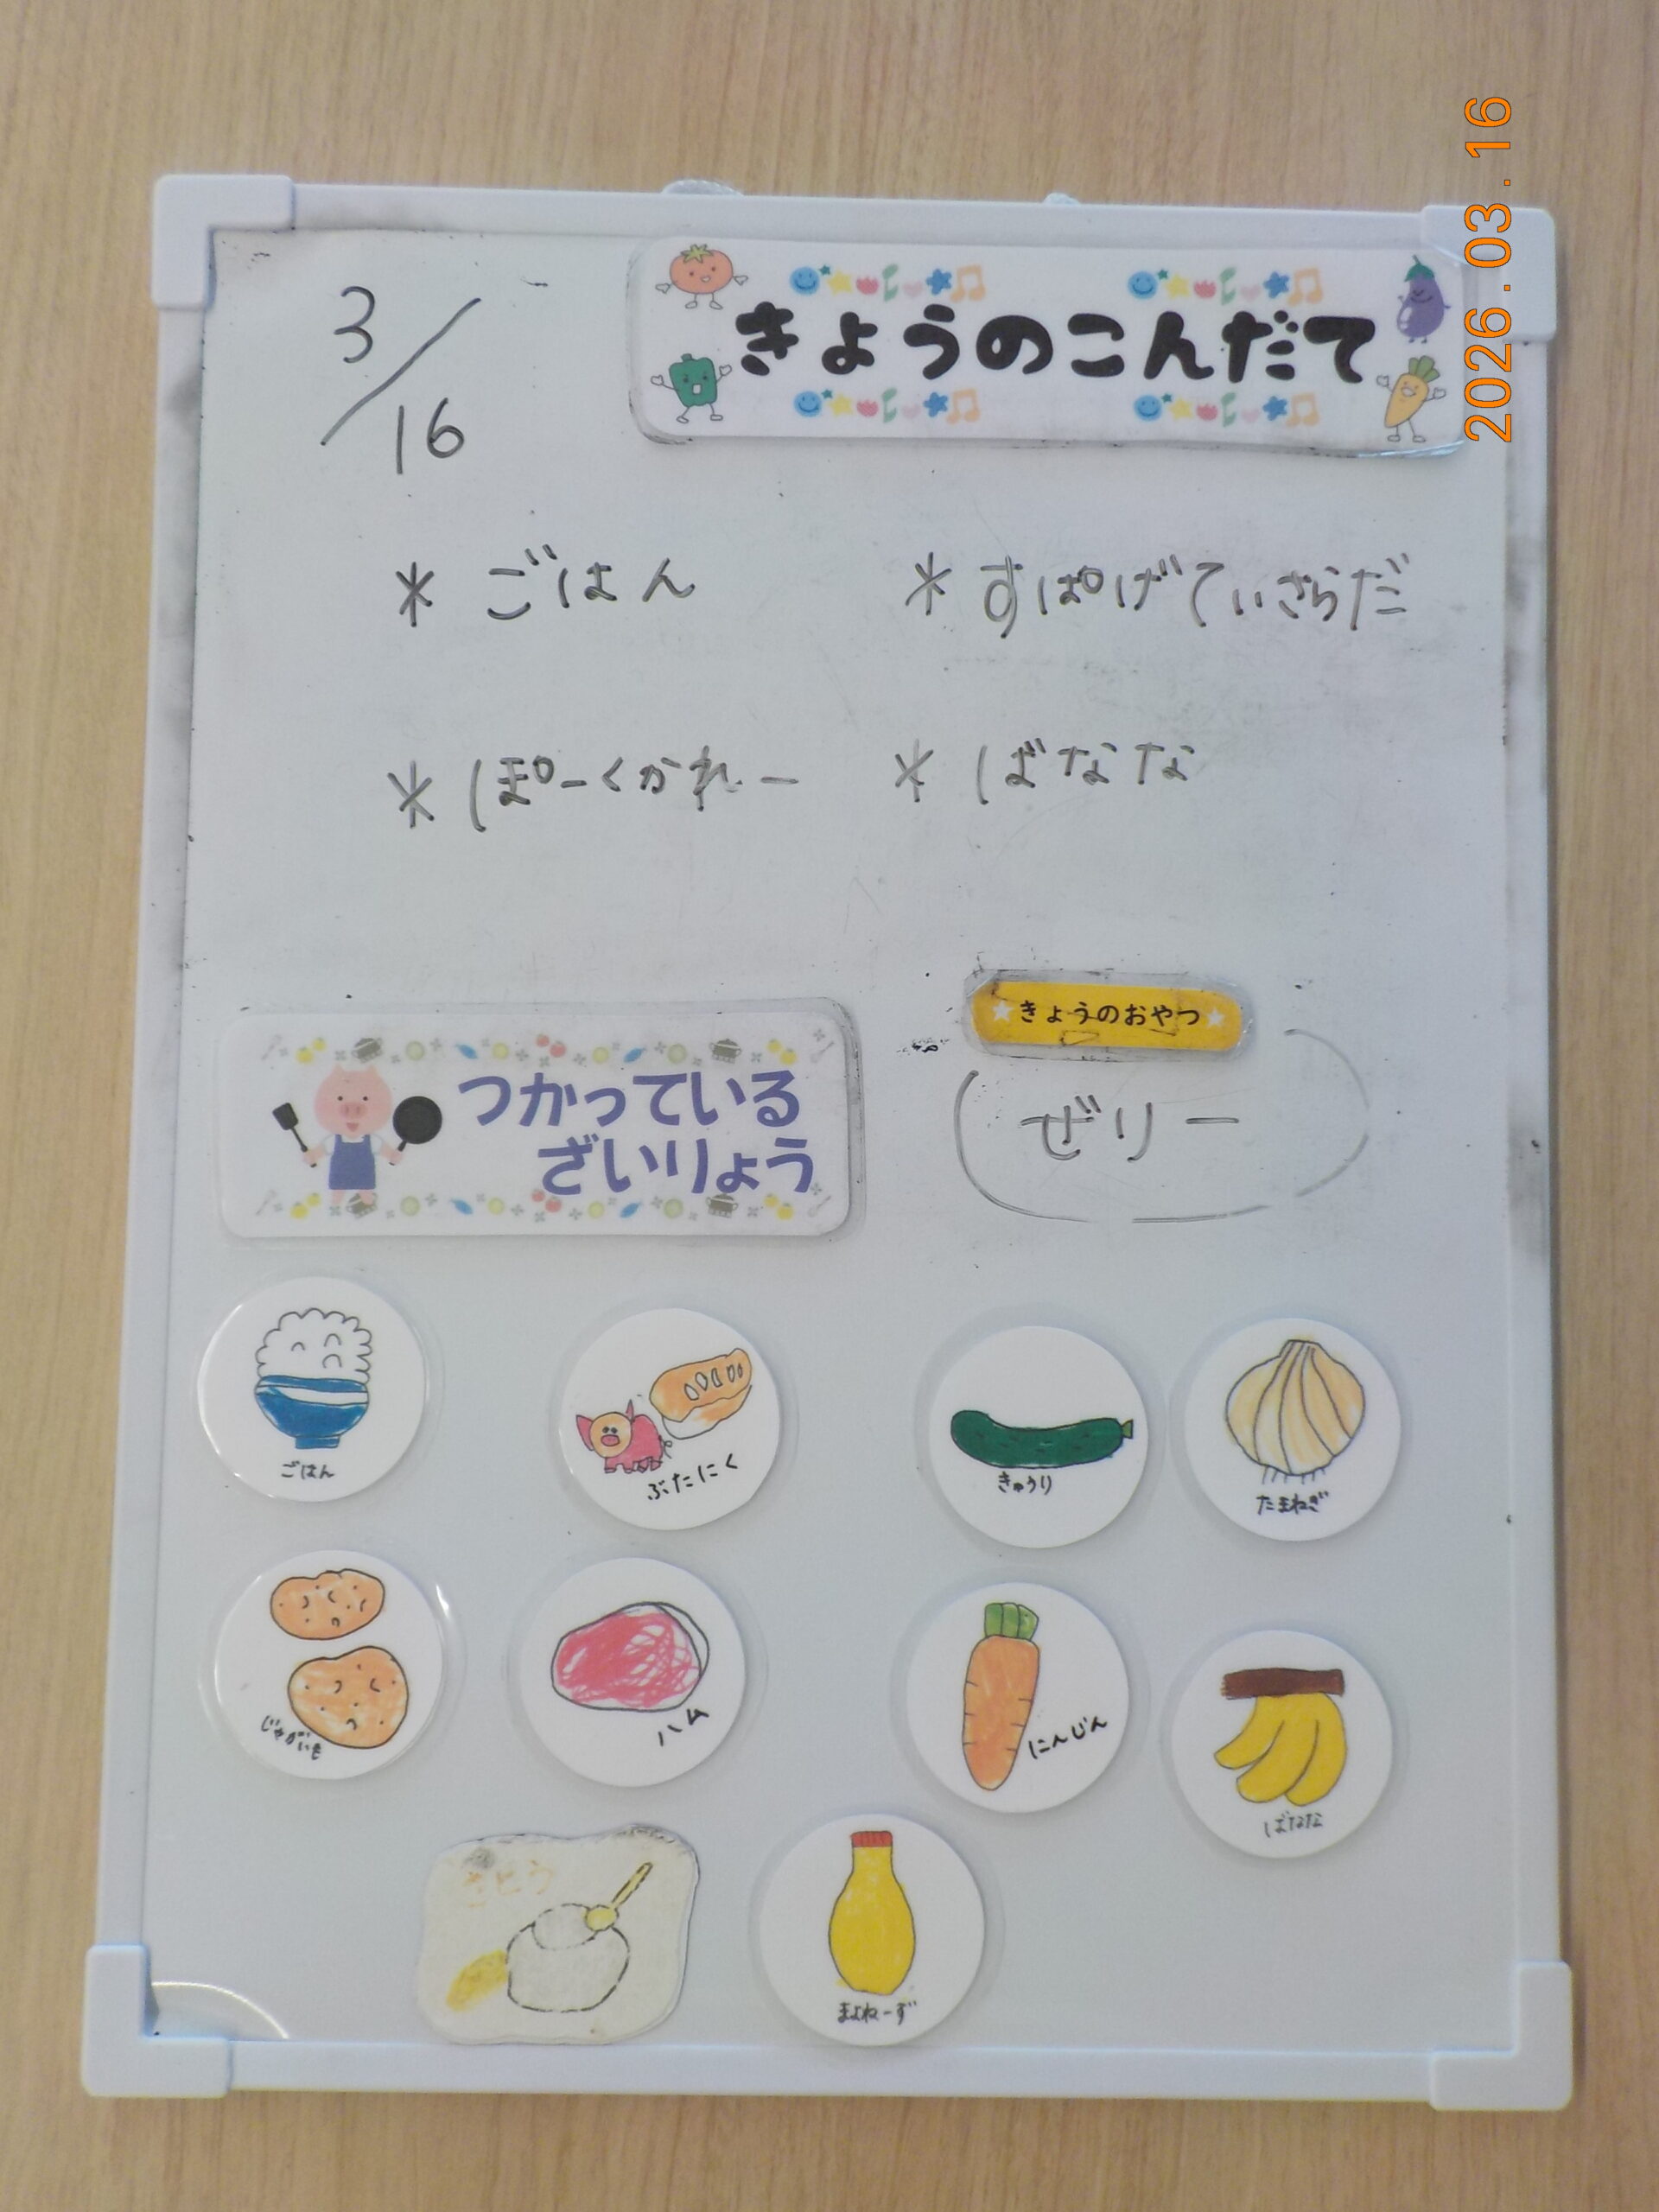 2026.03.16
3/16
きょうのこんだて
* ごはん
* すぱげてぃさらだ
* ぽーくかれー
* ばなな
きょうのおやつ
ぜりー
つかっている
ざいりょう
ごはん
ぶたにく
きゅうり
たまねぎ
じゃがいも
ハム
にんじん
ばなな
さとう
まよねーず